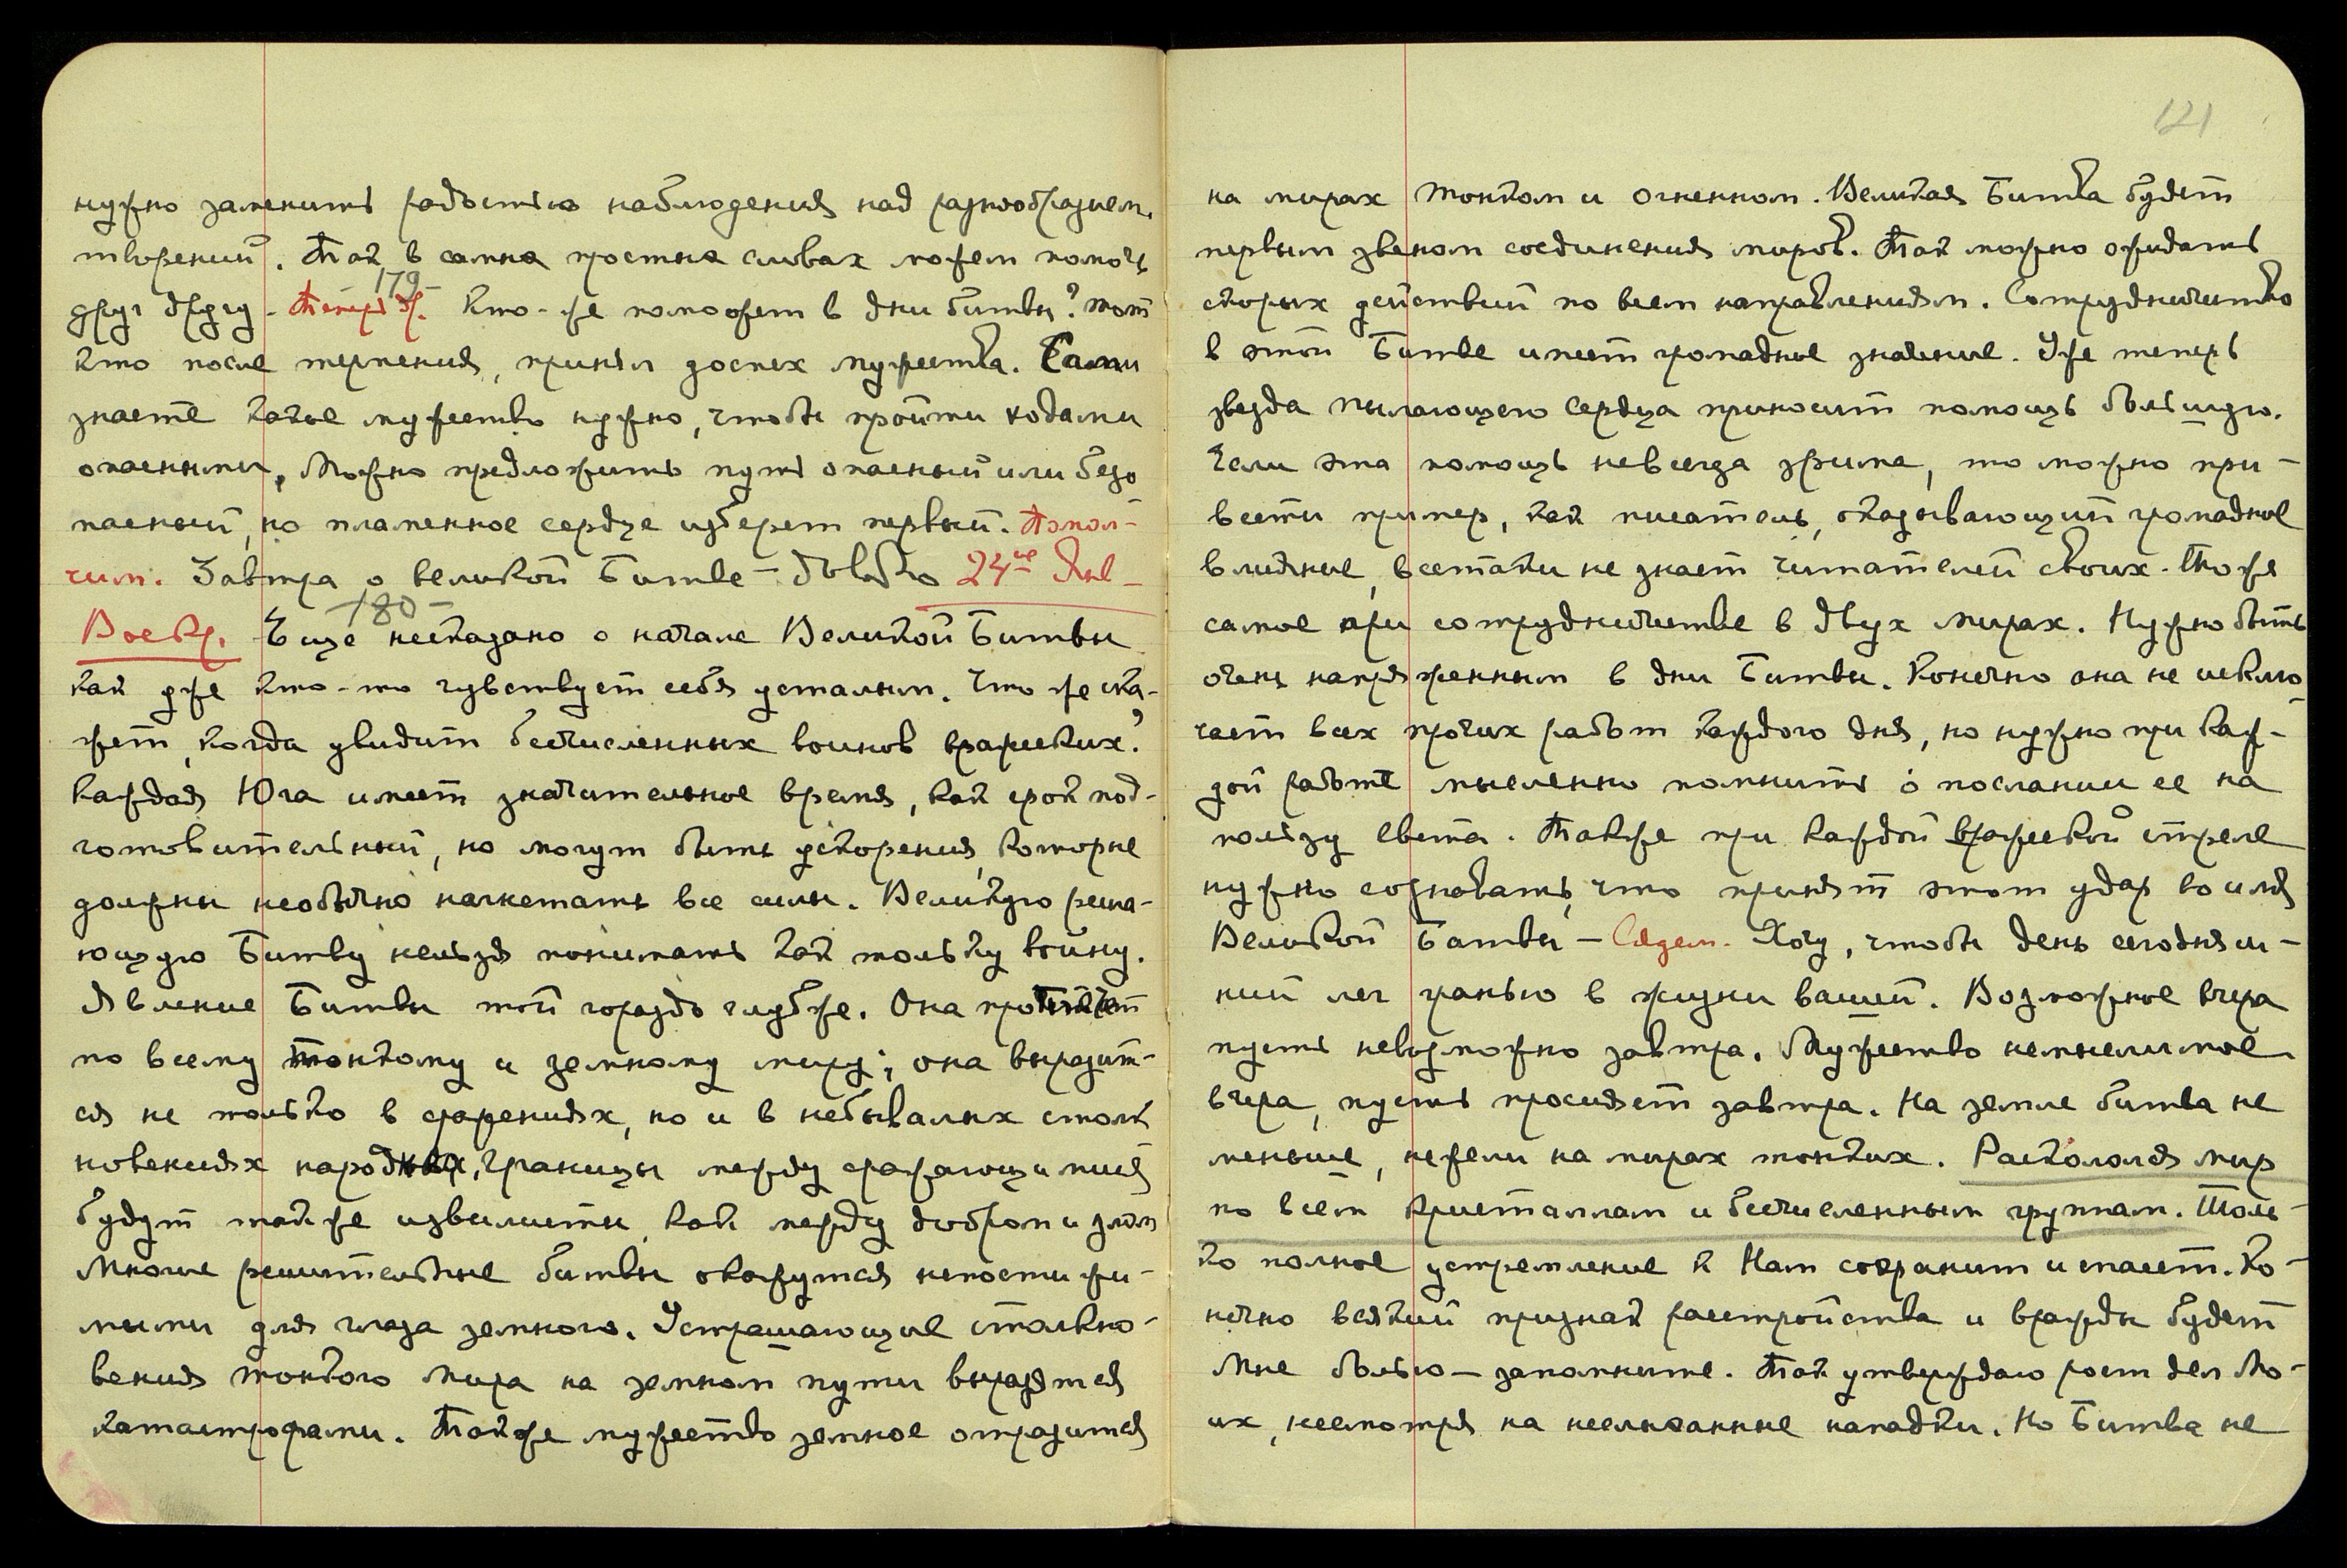 нужно заменить радостью наблюдения над разнообразием
творений. Так в самых простых словах можем помочь
179
друг другу. Теперь др. Кто-же поможет в дни битвы? Тот
кто после терпения, принял доспех мужества. Сами
знаете какое мужество нужно, чтобы пройти ходами
опасными, Можно предложить путь опасный или безо
пасный, но пламенное сердце изберет первый. Помол-
чим. Завтра о великой Битве – довольно 24ое Янв –
180 –
Воскр. Еще несказано о начале Великой Битвы
как уже кто-то чувствует себя усталым. Что же ска-
жет, когда увидит бесчисленных воинов вражеских?
Каждая Юга имеет значительное время, как срок под-
готовительный, но могут быть ускорения, которые
должны необычно нагнетать все силы. Великую реша-
ющую Битву нельзя понимать как только войну.
Явление Битвы той гораздо глубже. Она протечет
по всему тонкому и земному миру; она выразит-
ся не только в сражениях, но и в небывалых столк
новениях народных, Границы между сражающимися
будут также извилисты, как между добром и злом
Многие решительные битвы окажутся непостижи-
мыми для глаза земного. Устрашающие столкно-
вения тонкого Мира на земном пути выразятся
катастрофами. Также мужество земное отразится
121
на мирах тонком и огненном. Великая Битва будет
первым звеном соединения миров. Так можно ожидать
скорых действий по всем направлениям. Сотрудничество
в этой Битве имеет громадное значение. Уже теперь
звезда пылающего сердца приносит помощь большую.
Если эта помощь невсегда зрима, то можно при-
вести пример, как писатель, оказывающий громадное
влияние, всетаки не знает читателей своих. Тоже
самое при сотрудничестве в двух мирах. Нужно быть
очень напряженным в дни Битвы. Конечно она не исклю
чает всех прочих работ каждого дня, но нужно при каж-
дой работе мысленно помнить о послании ее на
пользу света. Также при каждой вражеской стреле
нужно сознавать, что принят этот удар во имя
Великой Битвы – Сядем. Хочу, чтобы день сегодняш-
ний лег гранью в жизни вашей. Возможное вчера
пусть невозможно завтра. Мужество немыслимое
вчера, пусть просияет завтра. На земле битва не
меньше, нежели на мирах тонких. Раскололся мир
по всем кристаллам и бесчисленным группам. Толь-
ко полное устремление к Нам сохранит и спасет. Ко-
нечно всякий признак расстройства и вражды будет
Мне болью – запомните. Так утверждаю рост дел Мо-
их, несмотря на неслыханные нападки. Но Битва не